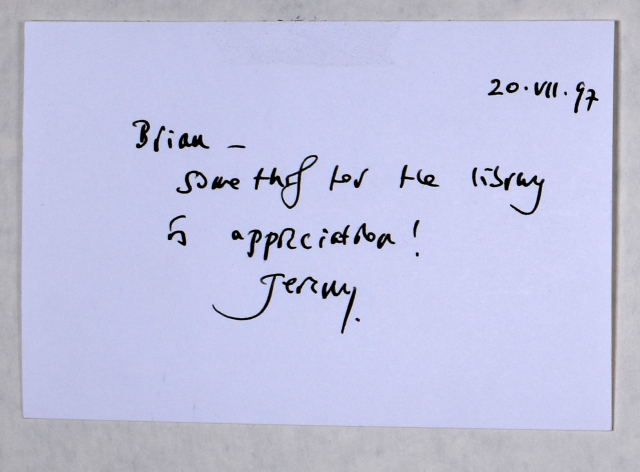 20.VII.97
Brian –
Something for the library
in appreciation!
Jeremy.